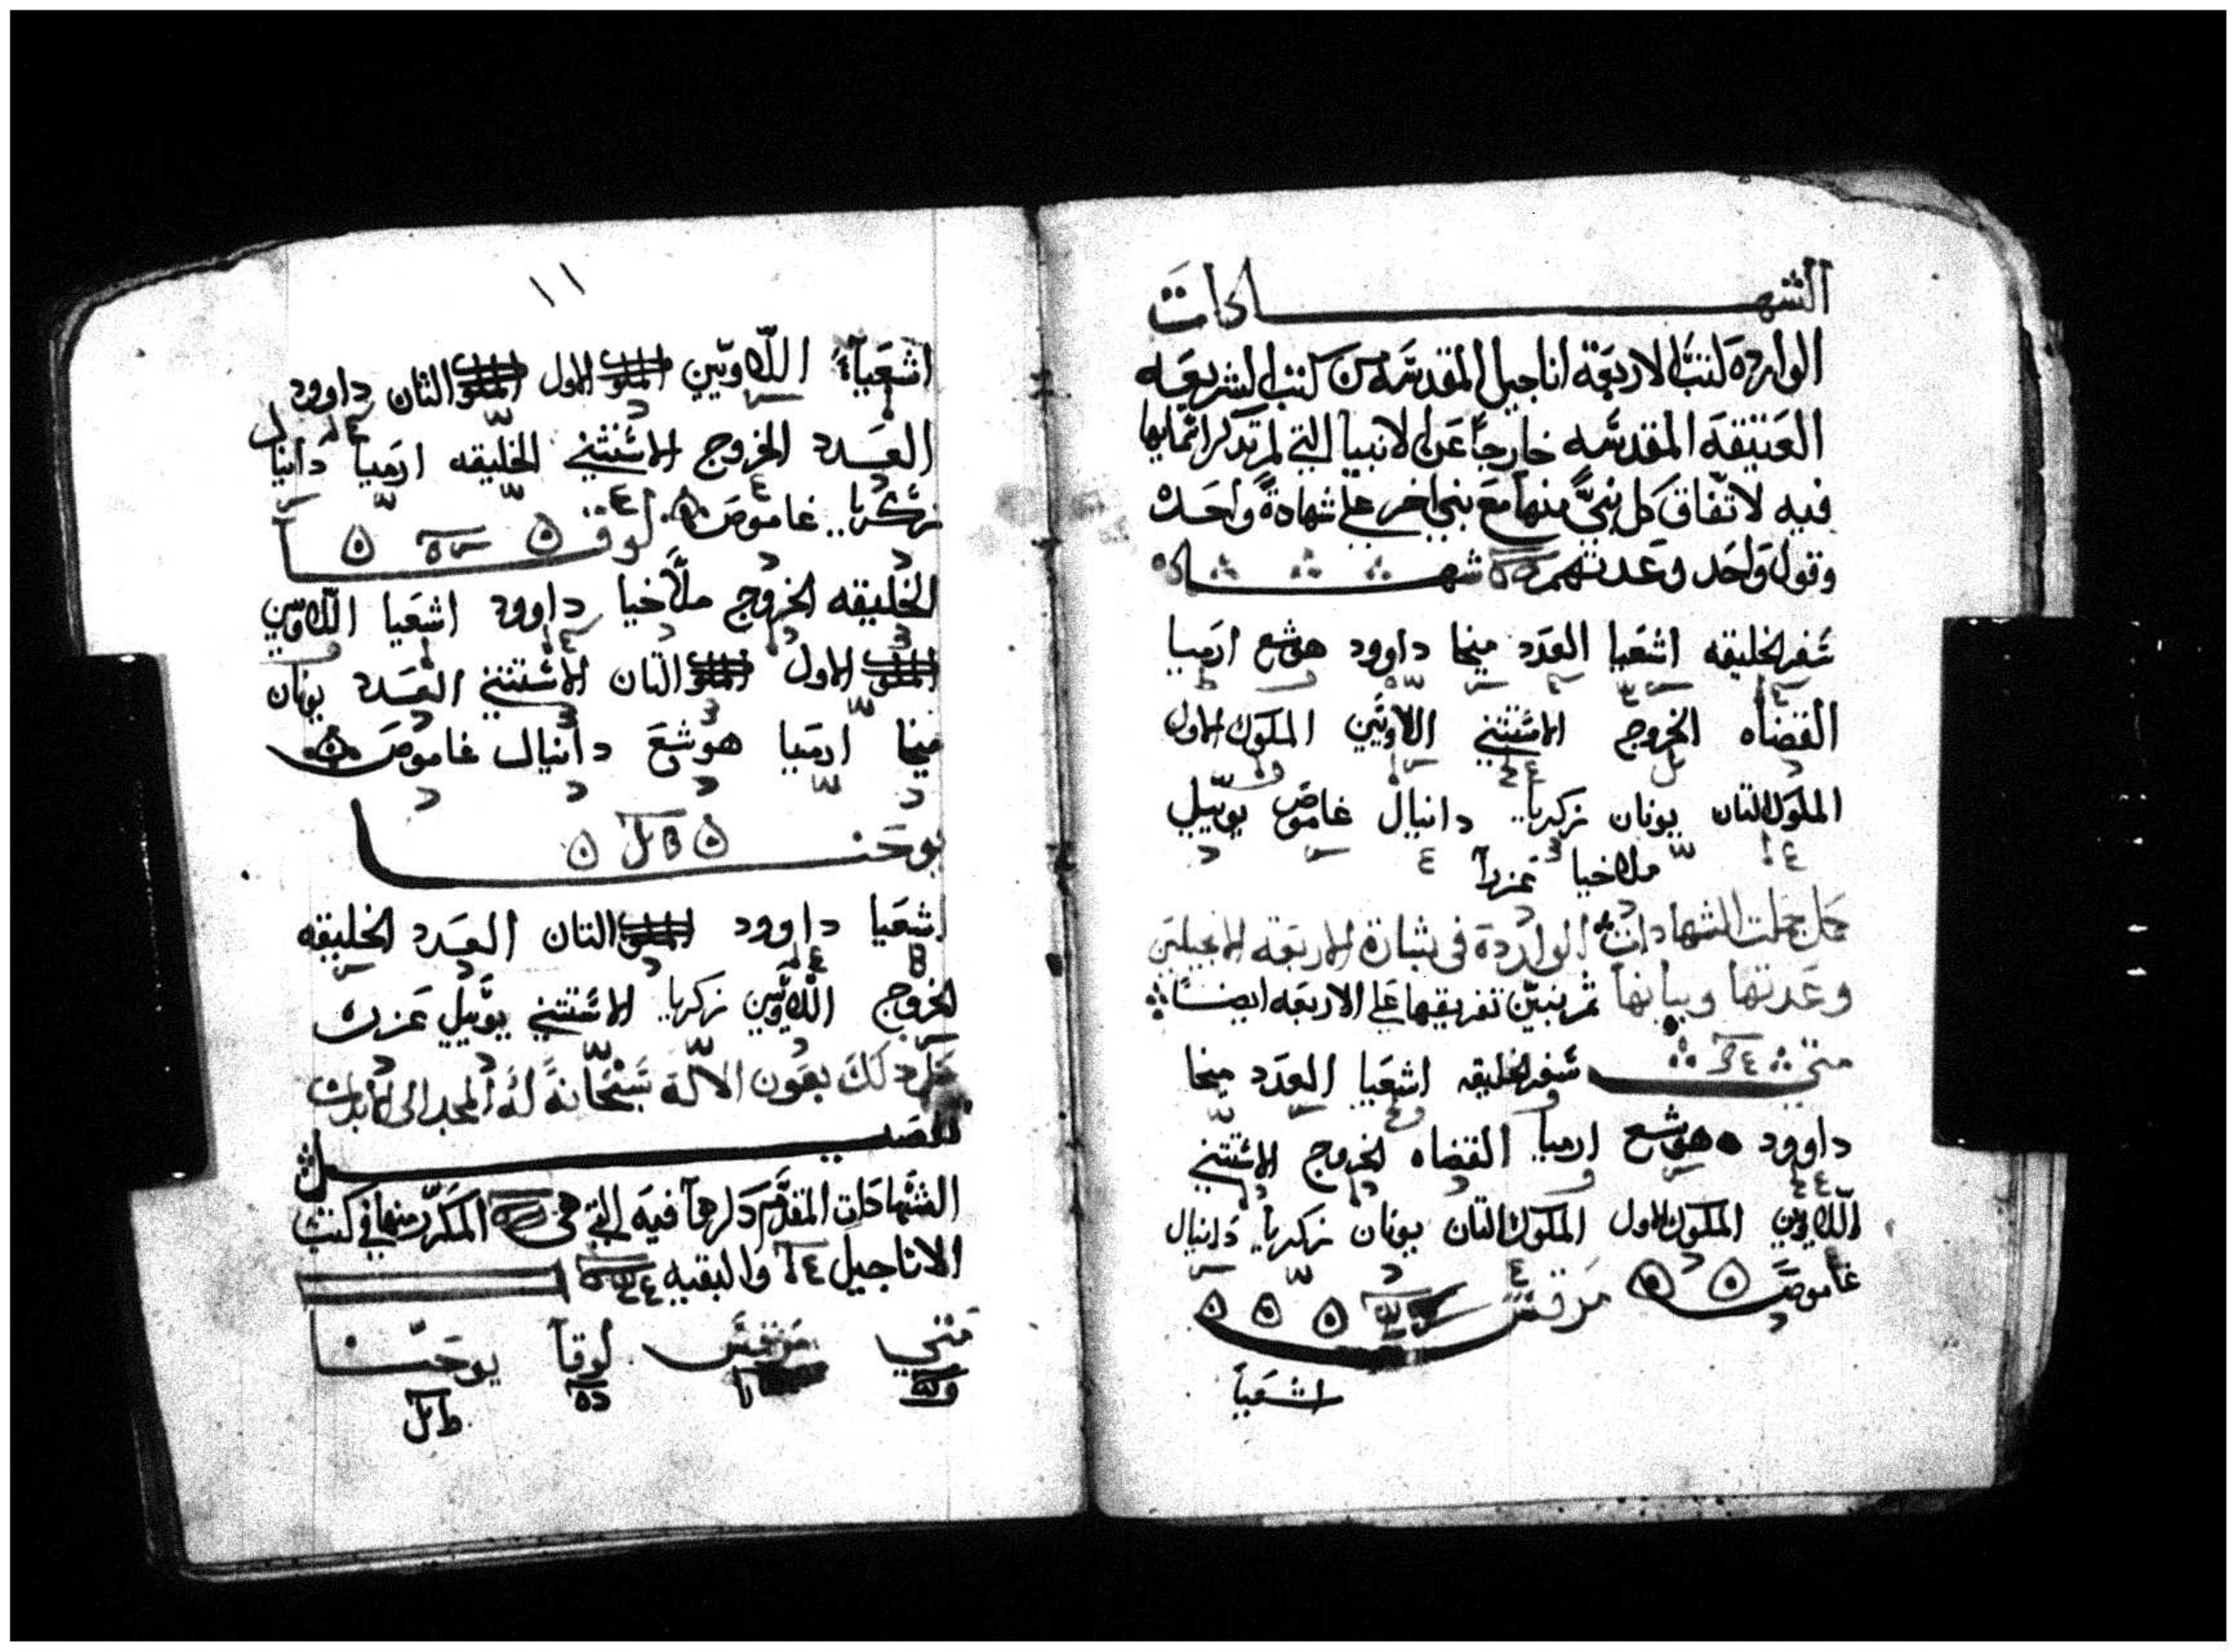 الشهادات
الواردة لكتب الاربعة اناجيل المقدسه من كتب الشريعه
العتيقة المقدسه خارجاً عن الانبيا التي لم تذكر اسمايها
فيه لاتفاق كل نبيّ منها مع نبي اخر على شهادةً واحده
وقول واحد وعدتهم شهاده
سفر الخليقه اشعيا العدد ميخا داوود هوشع ارميا
القضاه الخروج الاستثني اللاويين الملوك الاول
الملوك التان يونان زكريا دانيال غاموص يوييل
ملاخيا عزرا
جملت الشهادات الواردة في بشارة الاربعه الانجيليين
وعدتها وبيانها ثم نبيّن تفريقها على الاربعه ايضاً
متي سفر الخليقه اشعيا العدد ميخا
داوود هوشع ارميا القضاه الخروج الاستثني
اللاويين الملوك الاول الملوك التان يونان زكريا دانيال
غاموص مرقس
اشعيا
١١
اشعيا اللاويين الملوك الاول الملوك التان داوود
العدد الخروج الاستثني الخليقه ارميا دانيال
زكريا غاموص لوقا
الخليقه الخروج ملاخيا داوود اشعيا اللاويين
الملوك الاول الملوك التان الاستثني العدد يونان
ميخا ارميا هوشع دانيال غاموص
يوحنا
اشعيا داوود الملوك التان العدد الخليقه
الخروج اللاويين زكريا الاستثني يوييل عزره
كمل دلك بعون الالاه سبحانهً لهُ المجد الى الابد
تفصيل
الشهادات المقدم دكرها فيه التي هي المكرر منها في كتب
الاناجيل والبقيه
متي مرقس لوقا يوحنا